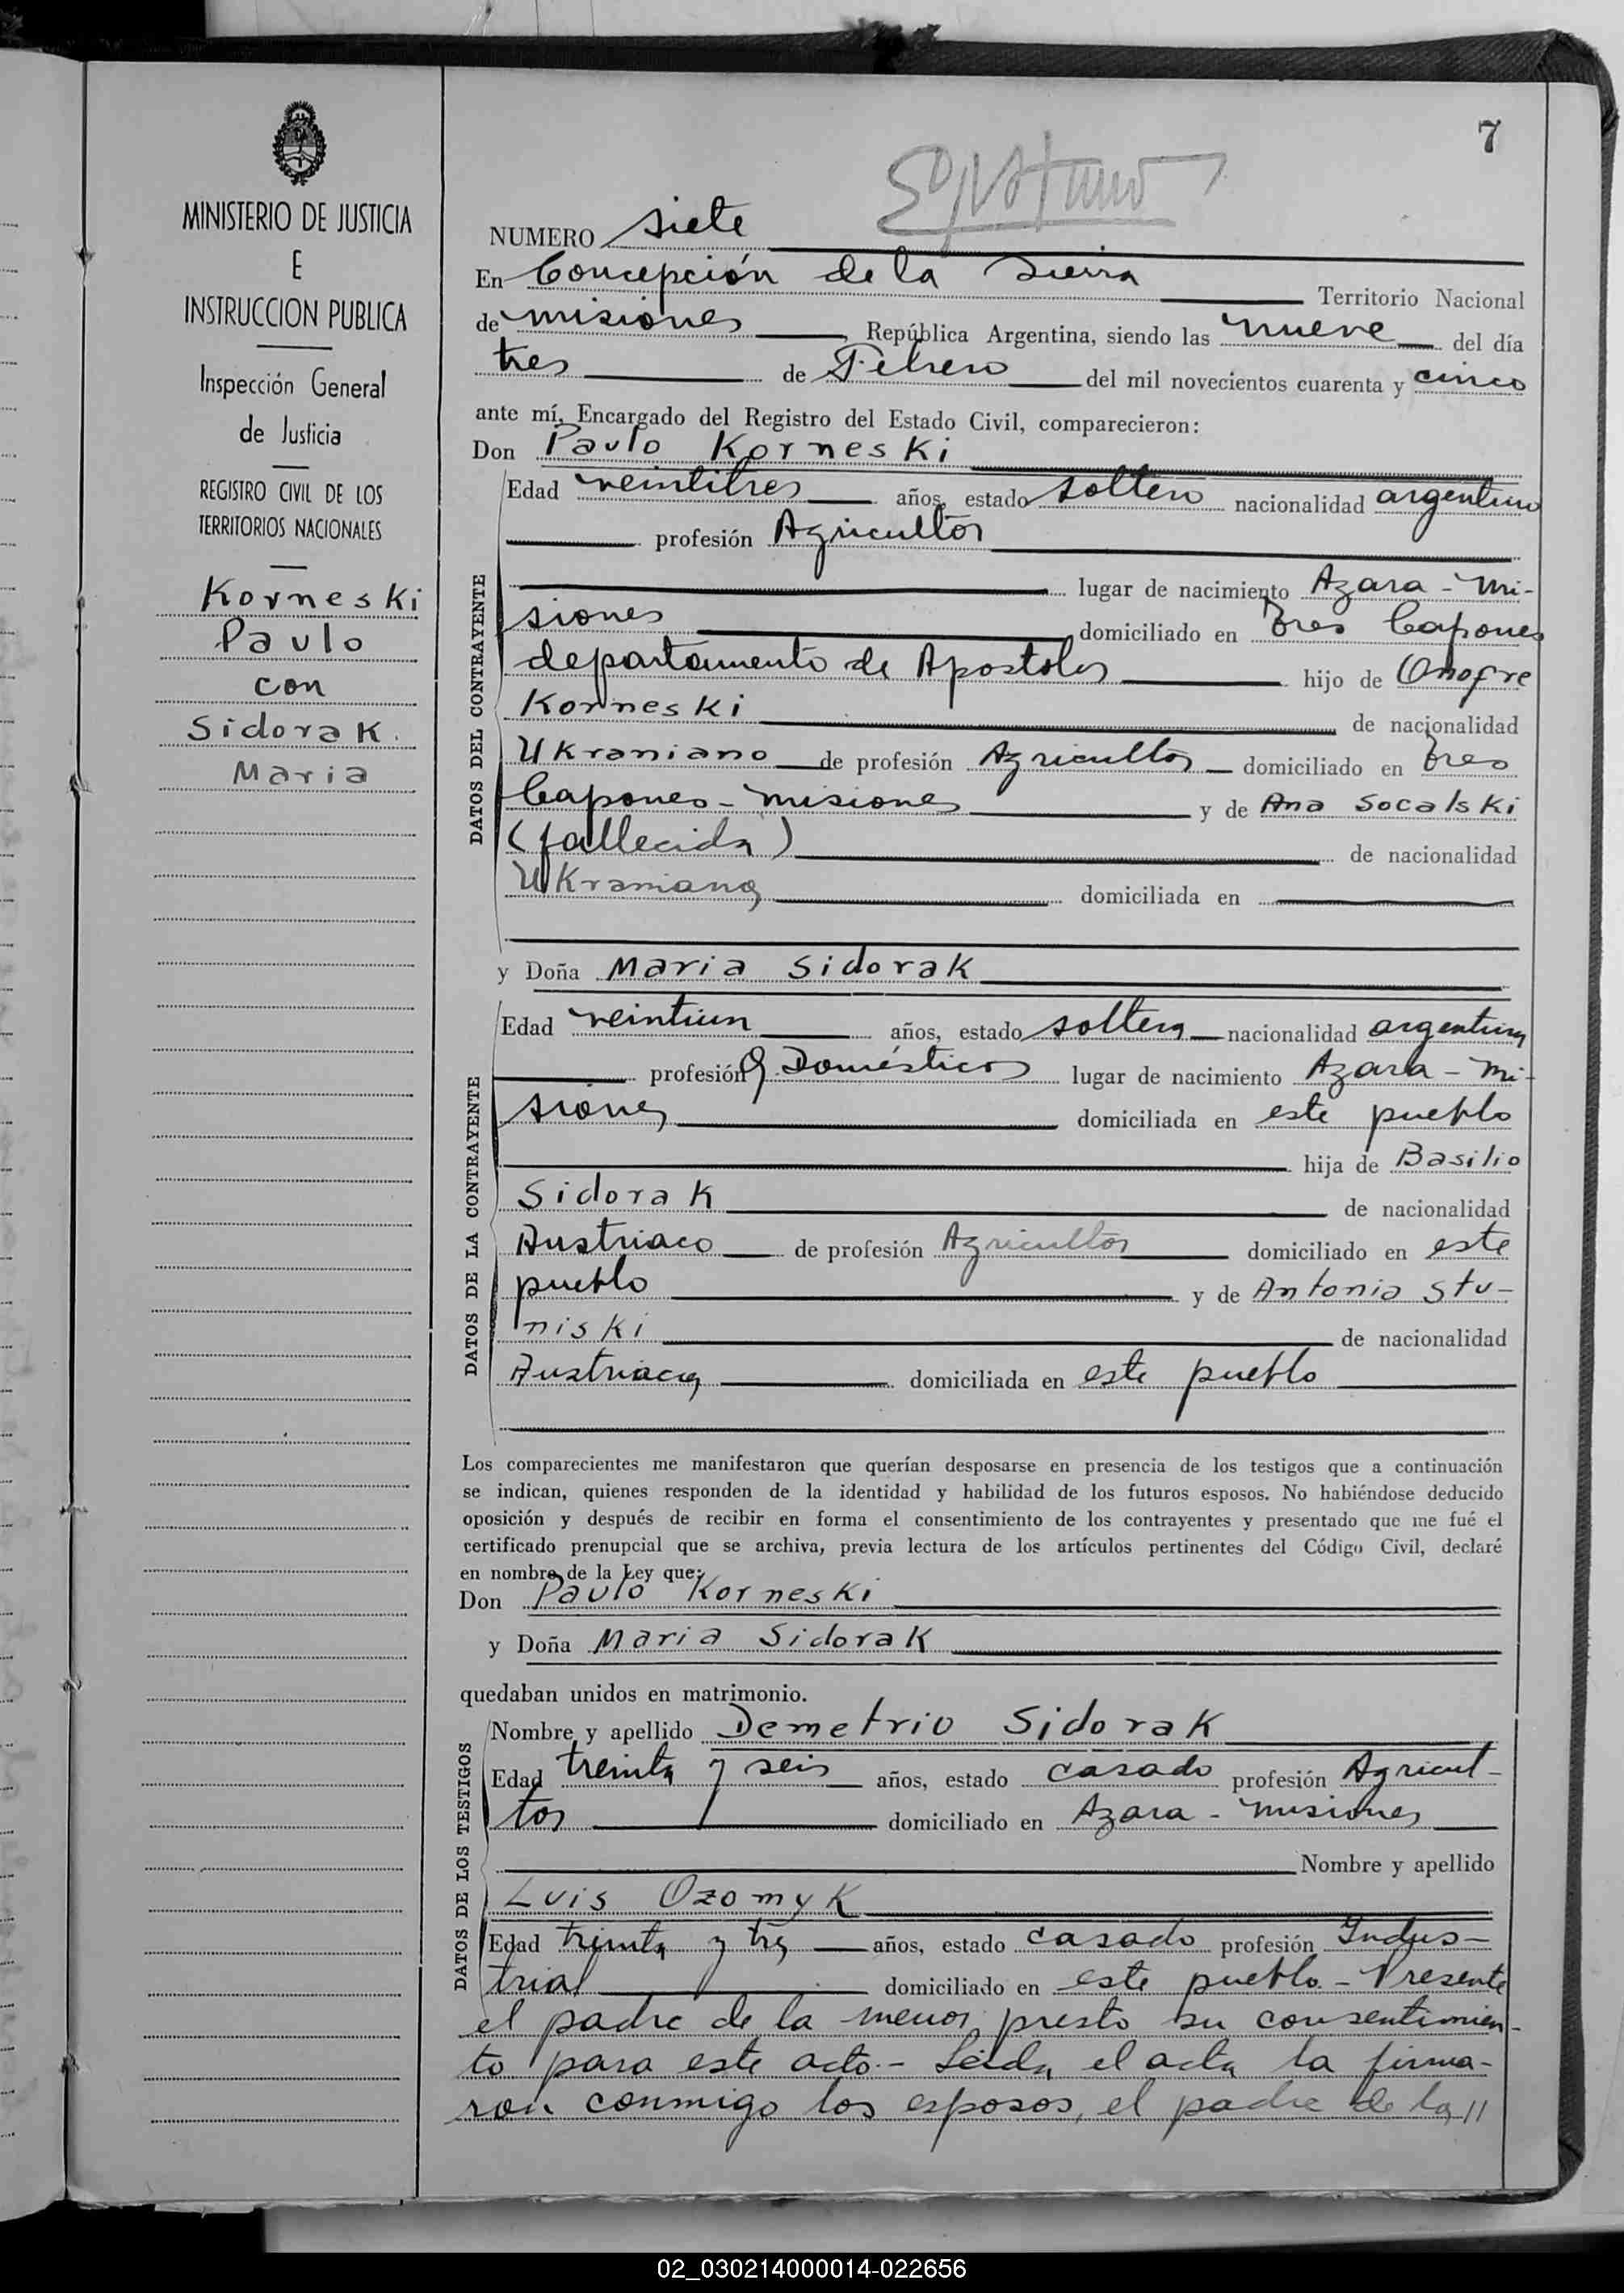 MINISTERIO DE JUSTICIA
E
INSTRUCCION PUBLICA
Inspección General
de Justicia
REGISTRO CIVIL DE LOS
TERRITORIOS NACIONALES
Korneski
Paulo
con
Sidorak.
Maria
7
NUMERO siete
En Concepción de la Sierra Territorio Nacional
de misiones, República Argentina, siendo las nueve del día
tres de Febrero del mil novecientos cuarenta y cinco
ante mí, Encargado del Registro del Estado Civil, comparecieron:
Don Paulo Korneski
DATOS DEL CONTRAYENTE
Edad veintitres años, estado soltero nacionalidad argentino
profesión Agricultor
lugar de nacimiento Azara - Mi-
siones domiciliado en Tres Capones
departamento de Apostoles hijo de Onofre
Korneski de nacionalidad
Ukraniano de profesión Agricultor domiciliado en Tres
Capones - misiones y de Ana Socalski
(fallecida) de nacionalidad
Ukraniana domiciliada en
y Doña Maria Sidorak
DATOS DE LA CONTRAYENTE
Edad veintiun años, estado soltera nacionalidad argentina
profesión Q. Domésticos lugar de nacimiento Azara - Mi-
siones domiciliada en este pueblo
hija de Basilio
Sidorak de nacionalidad
Austriaco de profesión Agricultor domiciliado en este
pueblo y de Antonia Stu-
niski de nacionalidad
Austriaca domiciliada en este pueblo
Los comparecientes me manifestaron que querían desposarse en presencia de los testigos que a continuación
se indican, quienes responden de la identidad y habilidad de los futuros esposos. No habiéndose deducido
oposición y después de recibir en forma el consentimiento de los contrayentes y presentado que me fué el
certificado prenupcial que se archiva, previa lectura de los artículos pertinentes del Código Civil, declaré
en nombre de la Ley que:
Don Paulo Korneski
y Doña Maria Sidorak
quedaban unidos en matrimonio.
DATOS DE LOS TESTIGOS
Nombre y apellido Demetrio Sidorak
Edad treinta y seis años, estado casado profesión Agricul-
tor domiciliado en Azara - misiones
Nombre y apellido
Luis Ozomyk
Edad treinta y tres años, estado casado profesión Indus-
trial domiciliado en este pueblo. - Presente
el padre de la menor, presto su consentimien-
to para este acto. - Leida el acta la firma-
ron conmigo los esposos, el padre de la //
02_030214000014-022656